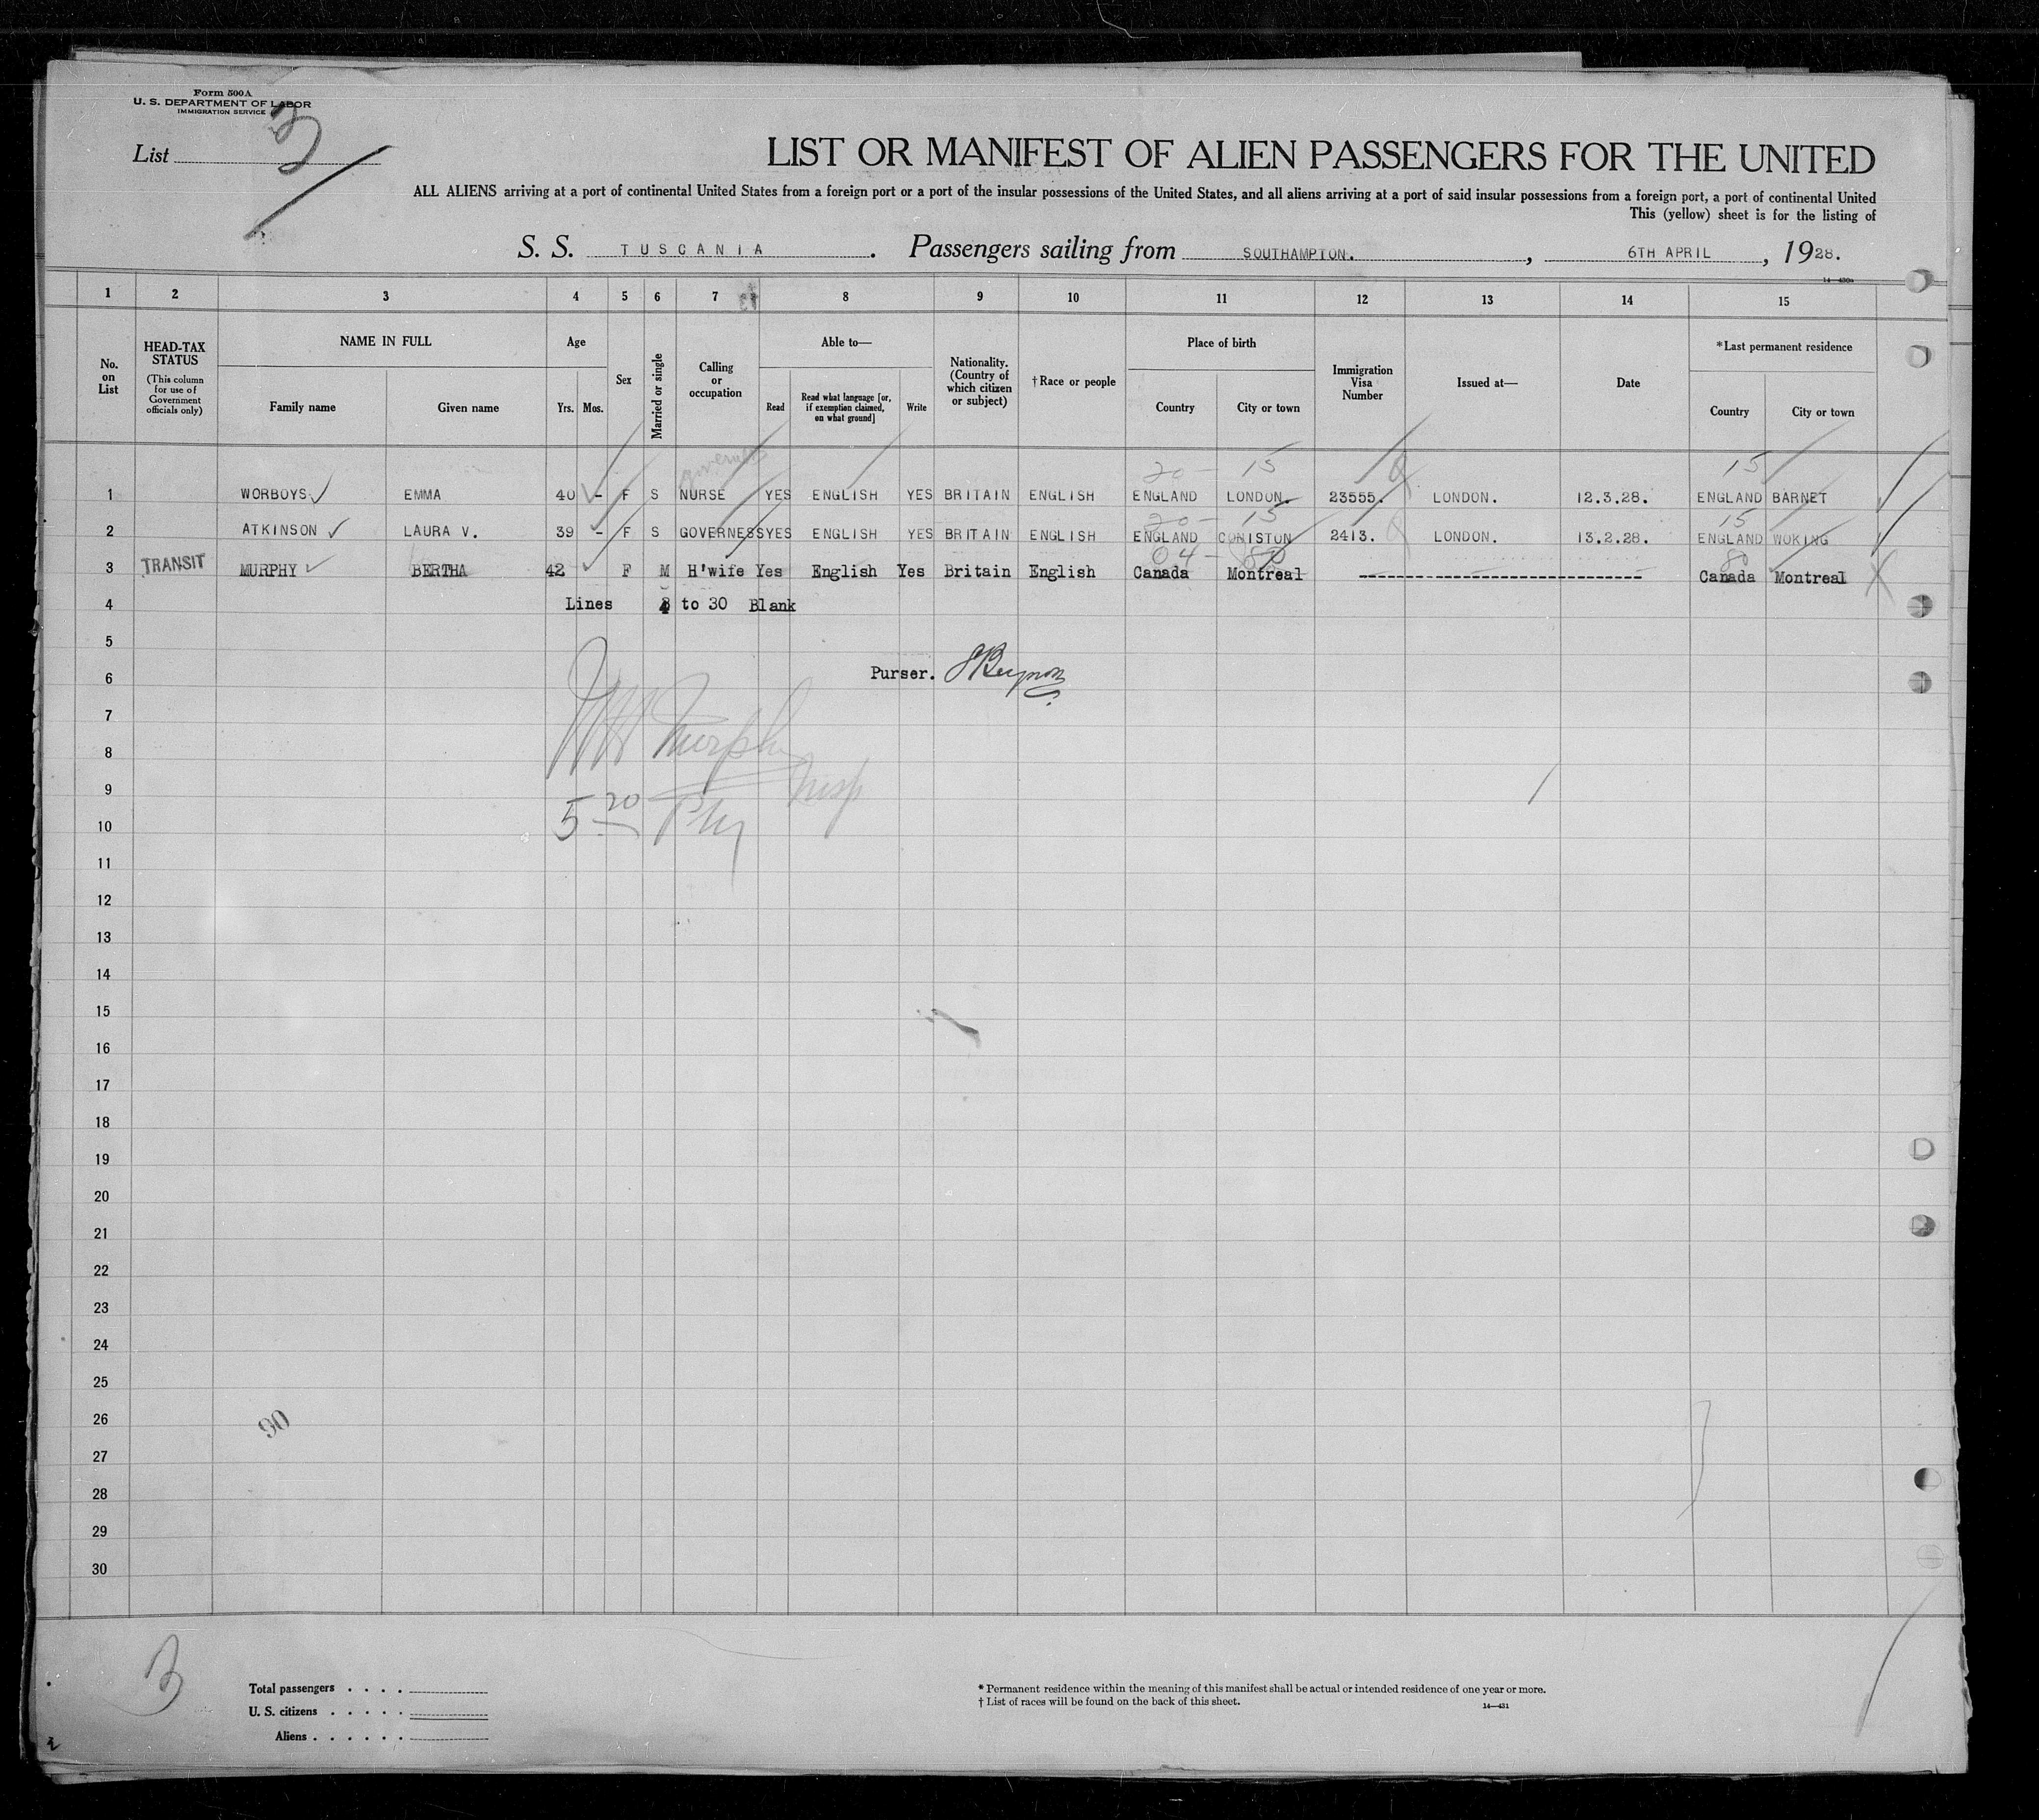 Form 500A
U. S. DEPARTMENT OF LABOR
IMMIGRATION SERVICE
List 3
LIST OR MANIFEST OF ALIEN PASSENGERS FOR THE UNITED
ALL ALIENS arriving at a port of continental United States from a foreign port or a port of the insular possessions of the United States, and all aliens arriving at a port of said insular possessions from a foreign port, a port of continental United
This (yellow) sheet is for the listing of
S. S. TUSCANIA. Passengers sailing from SOUTHAMPTON., 6TH APRIL, 1928.
1 2 3 4 5 6 7 8 9 10 11 12 13 14 15
No. on List
HEAD-TAX STATUS
(This column for use of Government officials only)
NAME IN FULL
Family name Given name
Age
Yrs. Mos.
Sex
Married or single
Calling or occupation
Able to—
Read
Read what language [or, if exemption claimed, on what ground]
Write
Nationality. (Country of which citizen or subject)
†Race or people
Place of birth
Country City or town
Immigration Visa Number
Issued at—
Date
*Last permanent residence
Country City or town
governess 20 – 15 15
1 WORBOYS EMMA 40 - F S NURSE YES ENGLISH YES BRITAIN ENGLISH ENGLAND LONDON. 23555. LONDON. 12.3.28. ENGLAND BARNET
20 – 15 15
2 ATKINSON LAURA V. 39 - F S GOVERNESS YES ENGLISH YES BRITAIN ENGLISH ENGLAND CONISTON 2413. LONDON. 13.2.28. ENGLAND WOKING
04 – 80 80
3 TRANSIT MURPHY BERTHA 42 F M H'wife Yes English Yes Britain English Canada Montreal ------------------------------ Canada Montreal
4 Lines 4 to 30 Blank
5
6 Purser.
7
8 Murphy
9 Insp
10 5 20 PM
11
12
13
14
15
16
17
18
19
20
21
22
23
24
25
26 90
27
28
29
30
3
Total passengers . . . .
U. S. citizens . . . . .
Aliens . . . . . .
* Permanent residence within the meaning of this manifest shall be actual or intended residence of one year or more.
† List of races will be found on the back of this sheet.
14—431